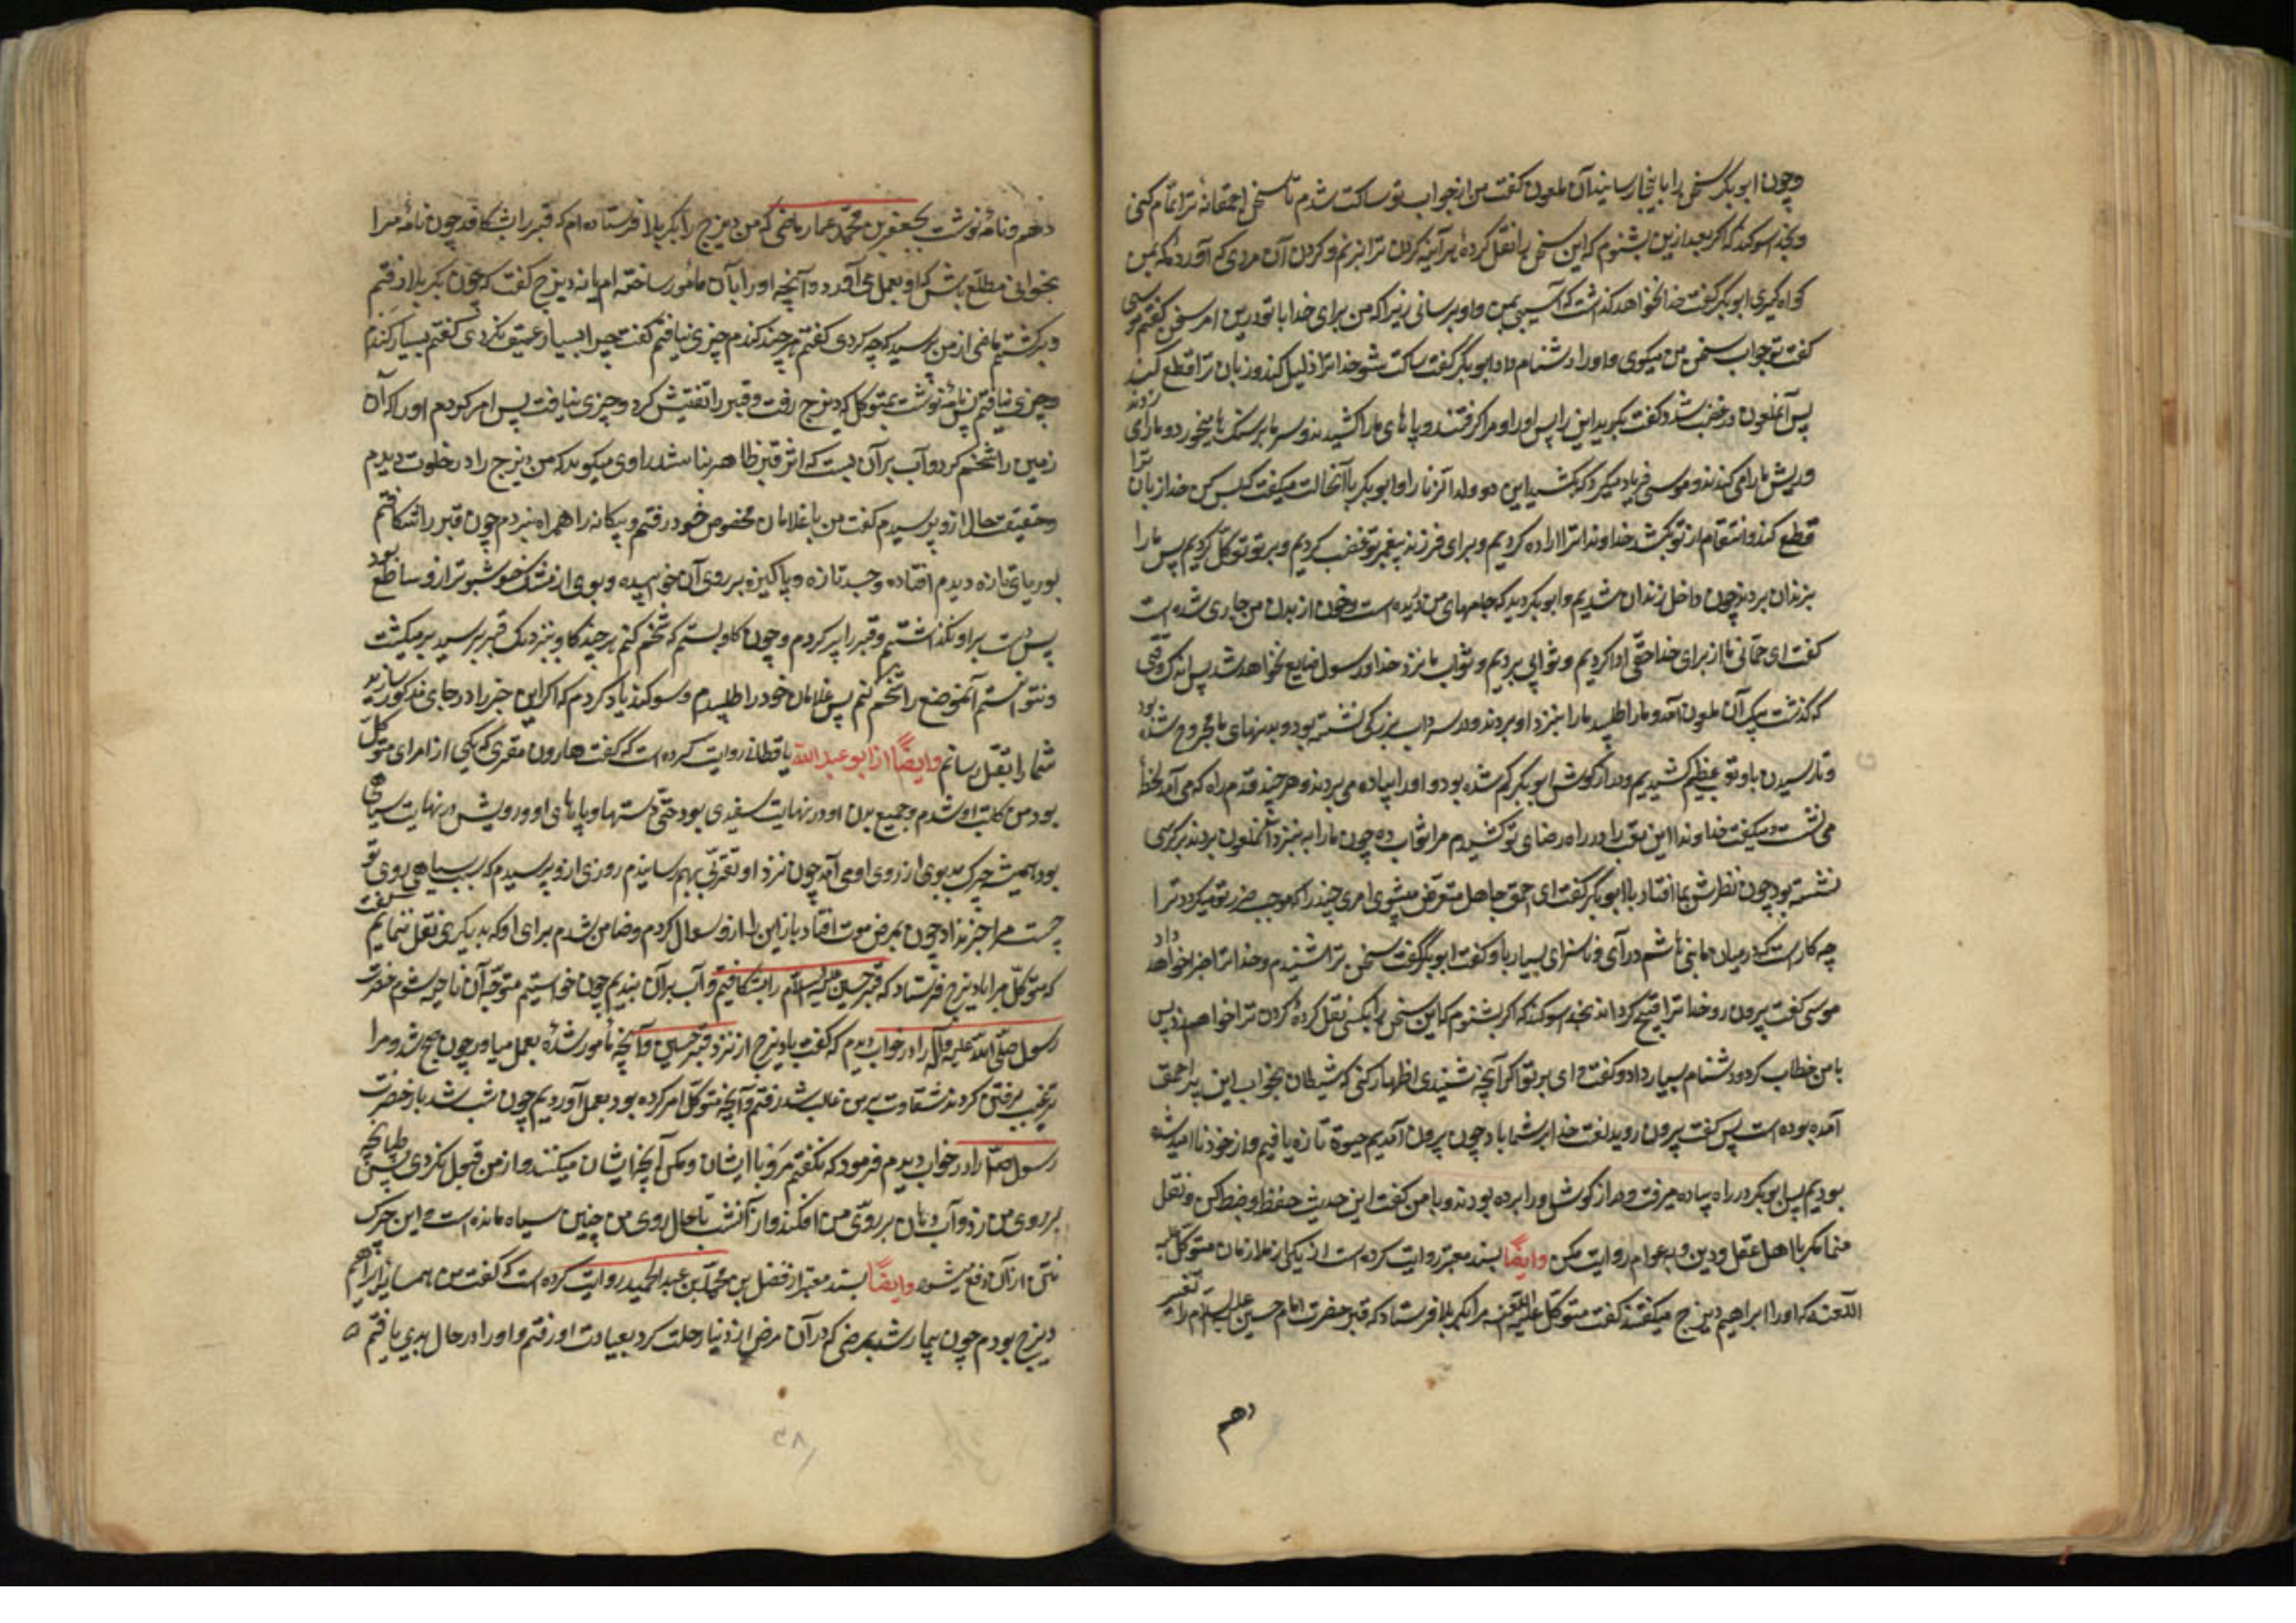 وچون ابو بکر سخن را باینجا رسانید آن ملعون کفت من از جواب تو ساکت شدم تا سخن احمقانهٔ ترا تمام کنی
وبخدا سوکند که اکر بعد ازین بشنوم که این سخن را نقل کردهٔ هر آینه کردن ترا بزنم و کردن آن مردی که آوردهٔ که بمن
کواه کیری ابو بکر کفت خدا نخواهد کذاشت که آسیبی بمن واو برسانی زیرا که من برای خدا با تو درین امر سخن کفتم موسی
کفت تو جواب سخن من میکوی واو را دشنام داد ابو بکر کفت ساکت شو خدا ترا ذلیل کند و زبان ترا قطع کند
پس آنملعون در غضب شد و کفت بکیرید این را پس او را و مرا کرفتند و پاهای ما را کشیدند و سر ما بر سنک ها میخورد و ما را می زدند
و ریش ما را می کندند و موسی فریاد میکرد که بکشید این دو ولد الزنا را و ابو بکر با آنحالت میکفت که بس کن خدا زبان ترا
قطع کند و انتقام از تو بکشد خداوندا ترا اراده کردیم و برای فرزند پیغمبر تو غضب کردیم و بر تو توکّل کردیم پس ما را
بزندان بردند چون داخل زندان شدیم و ابو بکر دید که جامهای من دریده است و خون از بدن من جاری شده است
کفت ای حمّانی ما از برای خدا حقّی ادا کردیم و ثوابی بردیم و ثواب ما نزد خدا و رسول ضایع نخواهد شد پس اندک وقتی
که کذشت پیک آن ملعون آمد و ما را طلبید ما را بنزد او بردند و در سرداب بزرکی نشسته بود و بدنهای ما مجروح شده بود
و تا رسیدن باو تعب عظیم کشیدیم و دراز کوش ابو بکر کم شده بود و او را پیاده می بردند و هر چند قدم راه که می آمد لحظهٔ
می نشست و میکفت خداوندا این تعب را در راه رضای تو کشیدم مرا ثواب ده چون ما را به نزد آنملعون بردند بر کرسی
نشسته بود چون نظرش بما افتاد با ابو بکر کفت ای احمق جاهل متعرّض میشوی امری چند را که موجب ضرر تو میکردد ترا
چه کار است که در میان ما بنی هاشم در آی و ناسزای بسیار باو کفت ابو بکر کفت سخن ترا شنیدم و خدا ترا جزا خواهد داد
موسی کفت بیرون رو خدا ترا قبیح کرداند بخدا سوکند که اکر بشنوم که این سخن را بکسی نقل کردهٔ کردن ترا خواهم زد پس
با من خطاب کرد و دشنام بسیار داد و کفت وای بر تو اکر آنچه شنیدی اظهار کنی که شیطان بخواب این پیر احمق
آمده بوده است پس کفت بیرون روید لعنت خدا بر شما باد چون بیرون آمدیم حیوة تازه یافیتم و از خود نا امید شده
بودیم پس ابو بکر در راه پیاده میرفت و دراز کوش او را برده بودند و با من کفت این حدیث حفظ و ضبط کن و نقل
منما مکر با اهل عقل و دین و به عوام روایت مکن وایضًا بسند معتبر روایت کرده است از یکی از ملازمان متوکّل علیه
اللّعنه که او را ابراهیم دیزج میکفتند کفت متوکّل علیه اللّعنه مرا بکربلا فرستاد که قبر حضرت امام حسین علیه السلام را تغییر
دهم
دهم و نامهٔ نوشت بجعفر بن محمّد عمار قاضی که من دیزج را بکربلا فرستاده ام که قبر را بشکافد چون نامهٔ مرا
بخوانی مطلّع باش که او بعمل می آورد آنچه او را بآن مامور ساخته ام یا نه دیزج کفت که چون بکربلا رفتم
و برکشتم قاضی از من پرسید که چه کردی کفتم هر چند کندم چیزی نیافتم کفت چرا بسیار عمیق نکردی کفتم بسیار کندم
و چیزی نیافتم پس نامه نوشت بمتوکل که دیزج رفت و قبر را تفتیش کرد و چیزی نیافت پس امر کردم او را که آن
زمین را شخم کرد و آب بر آن بست که اثر قبر ظاهر نباشد راوی میکوید که من دیزج را در خلوت دیدم
و حقیقت حال از و پرسیدم کفت من با غلامان مخصوص خود رفتم و بیکانه را همراه نبردم چون قبر را شکافتم
بوریای تازه دیدم افتاده و جسد تازه و پاکیزه بر روی آن خوابیده و بوی از مشک خوشبوتر از و ساطع بود
پس دست بر او نکذاشتم و قبر را پر کردم و چون کاو بستم که شخم کنم هر چند کاو بنزدیک قبر میرسید بر میکشت
و نتوانستم آنموضع را شخم کنم پس غلامان خود را طلبیدم و سوکند یاد کردم که اکر این خبر را در جای مذکور سازید
شما را بقتل رسانم وایضًا از ابو عبد اللّه باقطانی روایت کرده است که کفت هارون مقری که یکی از امرای متوکّل
بود من کاتب او شدم و جمیع بدن او در نهایت سفیدی بود حتّی دستها و پاهای او و رویش در نهایت سیاهی
بود و همیشه چرک بد بوی از روی او می آمد چون نزد او تقرّبی بهم رسانیدم روزی از و پرسیدم که سبب سیاهی روی تو
چیست مرا خبر نداد چون بمرض موت افتاد باز این را از و سوال کردم و ضامن شدم برای او که به دیکری نقل ننمایم کفت
که متوکّل مرا با دیزج فرستاد که قبر حسین علیه السلام را بشکافیم و آب بر آن ببندیم چون خواستیم متوجّه آن ناحیه شوم حضرت
رسول صلّی اللّه علیه و آله را در خواب دیدم که کفت با دیزج از نزد قبر حسین و آنچه مامور شدهٔ بعمل میاور چون صبح شد و مرا
ترغیب برفتن کردند شقاوت بر من غالب شد رفتم و آنچه متوکّل امر کرده بود بعمل آوردیم چون شب شد باز حضرت
رسول ص را در خواب دیدم فرمود که نکفتم مرَو با ایشان و مکن آنچه ایشان میکنند و از من قبول نکردی پس طپانچه
بر روی من زد و آب دهان بر روی من افکند و از آنشب تا حال روی من چنین سیاه مانده است و این چرک
نتن از آن دفع میشود وایضًا بسند معتبر از فضل بن محمّد بن عبد الحمید روایت کرده است که کفت من همسایهٔ ابراهیم
دیزج بودم چون بیمار شد بمرضی که در آن مرض از دنیا رحلت کرد بعیادت او رفتم و او را در حال بدی یافتم